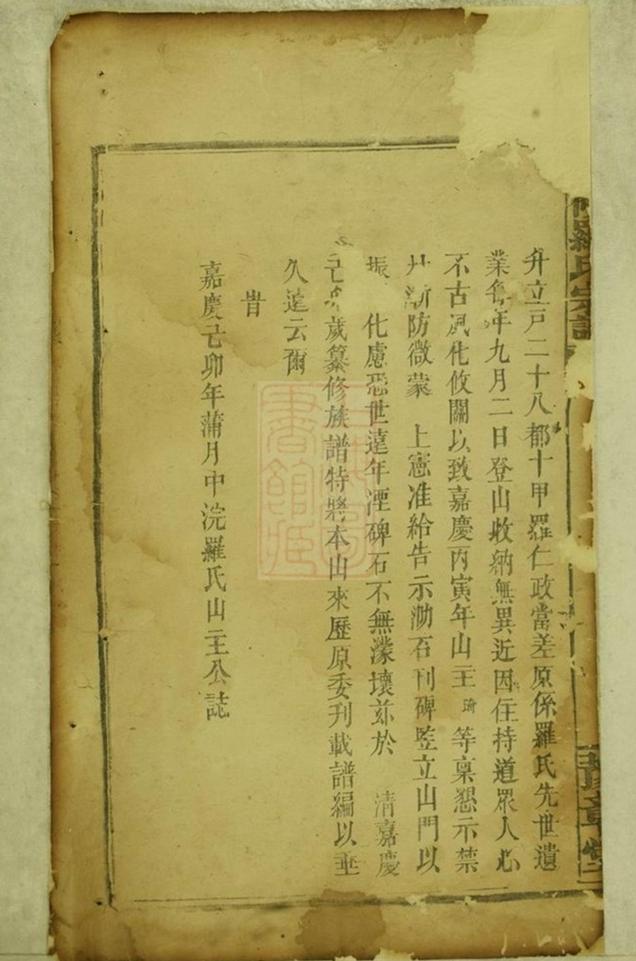 羅氏宗譜
升立戸二十八都十甲羅仁政當差原係羅氏先世遺
業每年九月二日登山收納無異近因住持道眾人心
不古風化攸關以致嘉慶丙寅年山主琦等稟懇示禁
杜漸防微蒙 上憲准給告示泐石刊碑竪立山門以
振 化慮恐世遠年湮碑石不無濛壞茲於 清嘉慶
己卯歲纂修族譜特將本山來歷原委刊載譜編以垂
久遠云爾
旹
嘉慶己卯年蒲月中浣羅氏山主公誌
書館藏